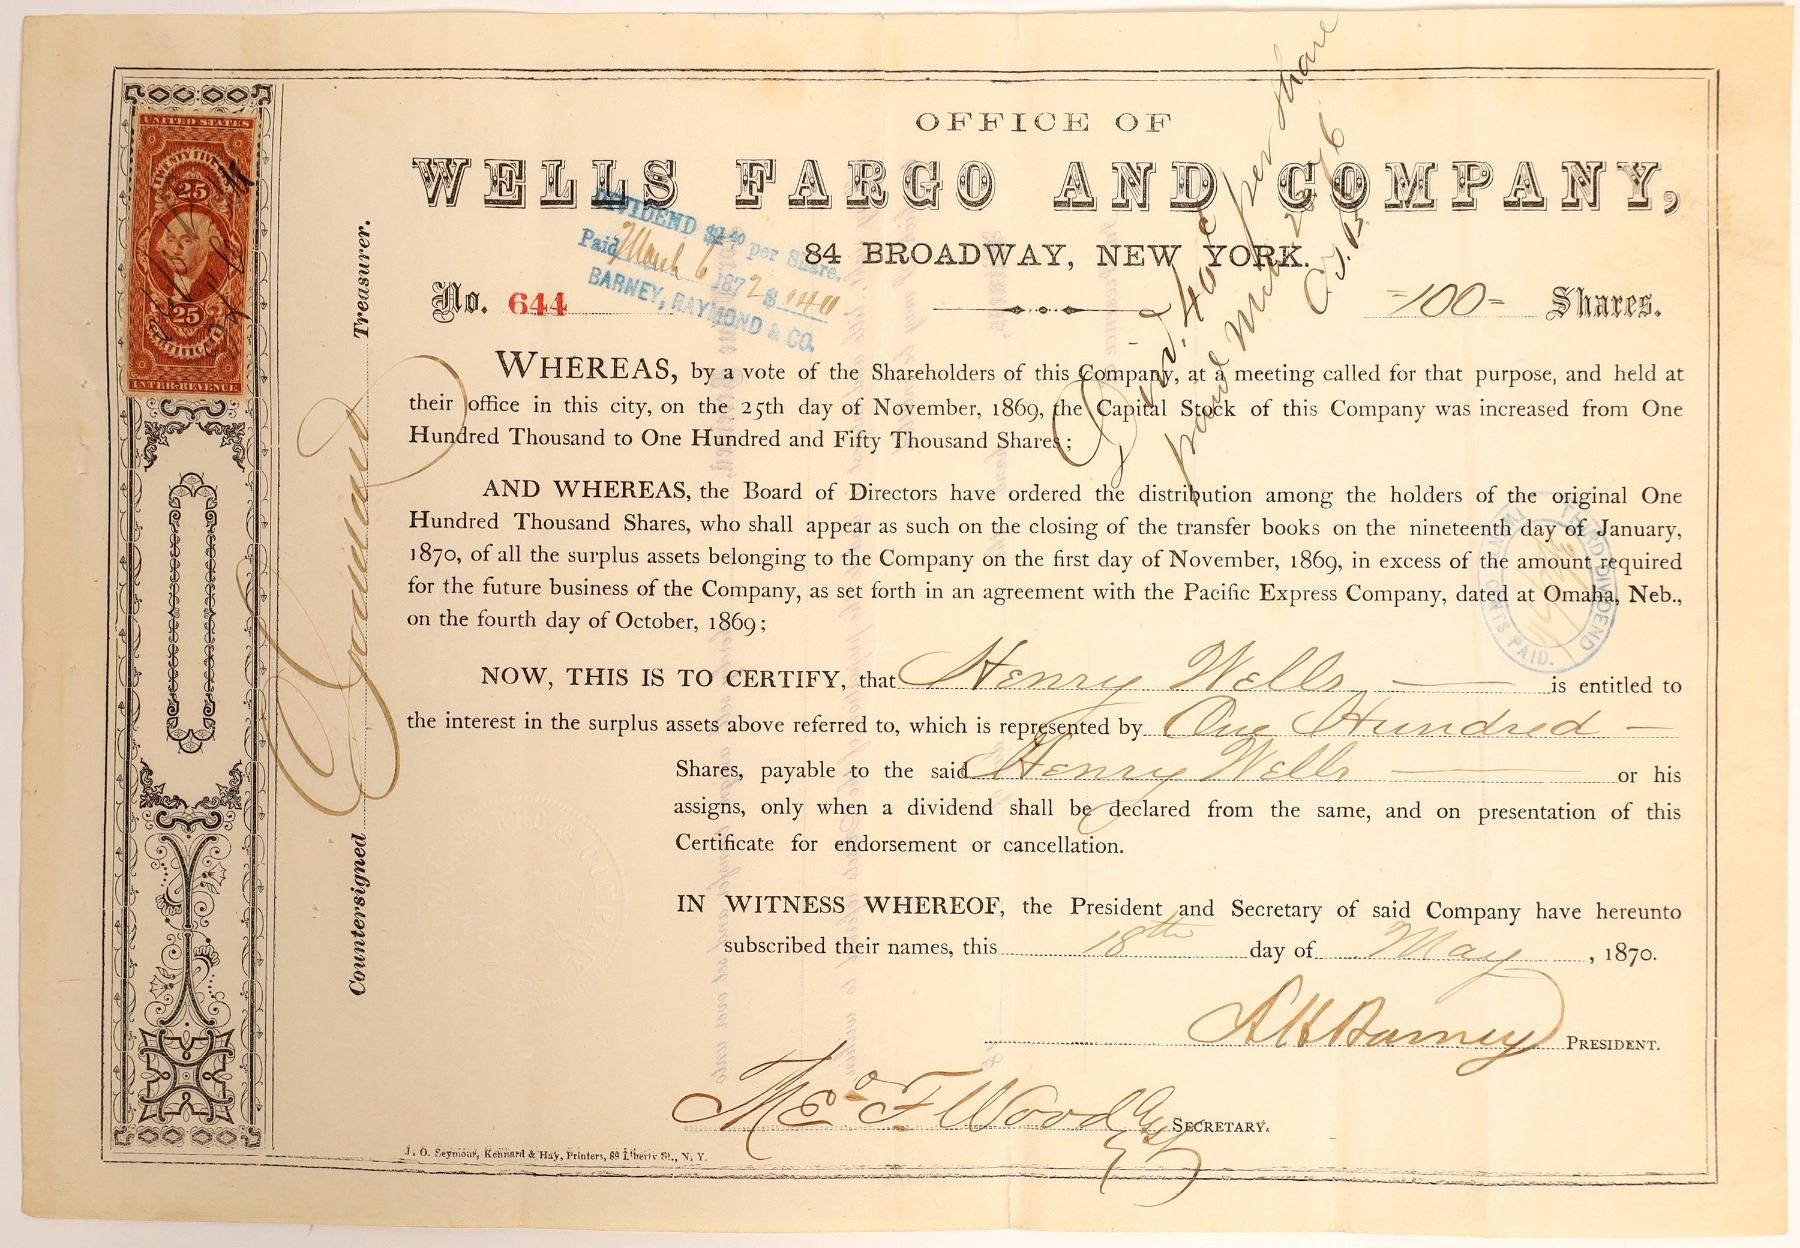 UNITED STATES
TWENTY FIVE
25
25 25
CERTIFICATE
INTER. REVENUE
OFFICE OF
WELLS FARGO AND COMPANY,
84 BROADWAY, NEW YORK.
DIVIDEND $1.40 per Share.
Paid March 6 1872 $ 140
BARNEY, RAYMOND & CO.
Div. 40c per share
paid
No. 644
-100- Shares.
WHEREAS, by a vote of the Shareholders of this Company, at a meeting called for that purpose, and held at
their office in this city, on the 25th day of November, 1869, the Capital Stock of this Company was increased from One
Hundred Thousand to One Hundred and Fifty Thousand Shares;
AND WHEREAS, the Board of Directors have ordered the distribution among the holders of the original One
Hundred Thousand Shares, who shall appear as such on the closing of the transfer books on the nineteenth day of January,
1870, of all the surplus assets belonging to the Company on the first day of November, 1869, in excess of the amount required
for the future business of the Company, as set forth in an agreement with the Pacific Express Company, dated at Omaha, Neb.,
on the fourth day of October, 1869;
THIRD DIVIDEND
TWENTY CENTS PAID.
NOW, THIS IS TO CERTIFY, that Henry Wells is entitled to
the interest in the surplus assets above referred to, which is represented by One Hundred
Shares, payable to the said Henry Wells or his
assigns, only when a dividend shall be declared from the same, and on presentation of this
Certificate for endorsement or cancellation.
IN WITNESS WHEREOF, the President and Secretary of said Company have hereunto
subscribed their names, this 18th day of May, 1870.
A H Barney PRESIDENT.
Geo F Wood SECRETARY.
Countersigned Treasurer.
J. O. Seymour, Kennard & Hay, Printers, 89 Liberty St., N. Y.